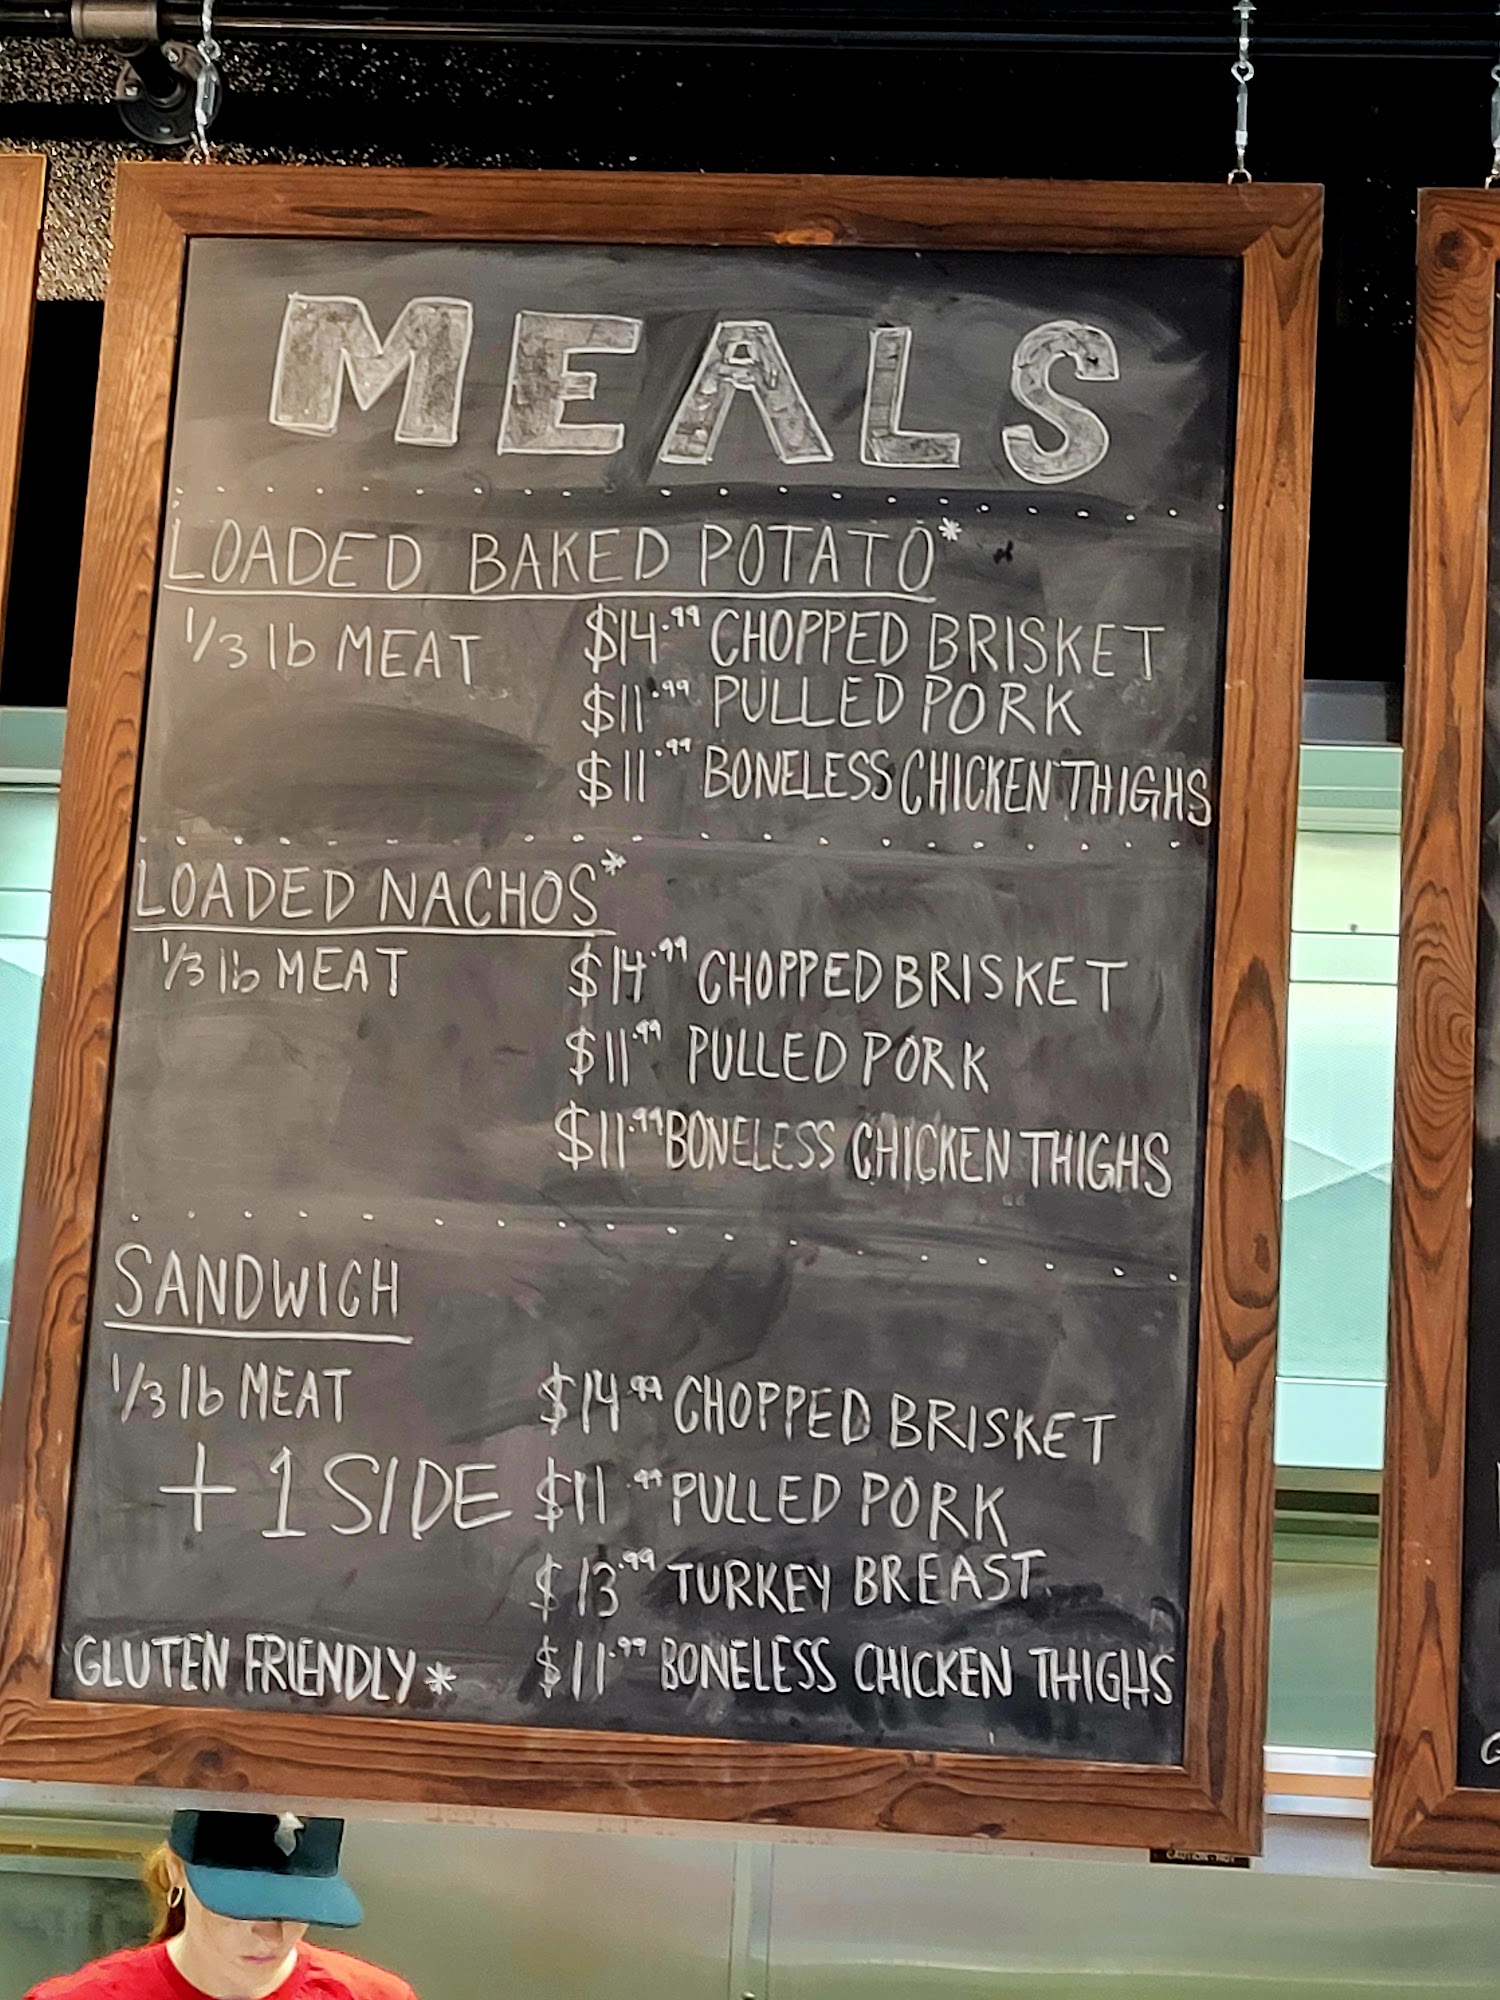 MEALS
LOADED BAKED POTATO*
1/3 lb MEAT $14.99 CHOPPED BRISKET
$11.99 PULLED PORK
$11.99 BONELESS CHICKEN THIGHS
LOADED NACHOS*
1/3 lb MEAT $14.99 CHOPPED BRISKET
$11.99 PULLED PORK
$11.99 BONELESS CHICKEN THIGHS
SANDWICH
1/3 lb MEAT $14.99 CHOPPED BRISKET
+ 1 SIDE $11.99 PULLED PORK
$13.99 TURKEY BREAST
GLUTEN FRIENDLY* $11.99 BONELESS CHICKEN THIGHS
CAUTION-HOT